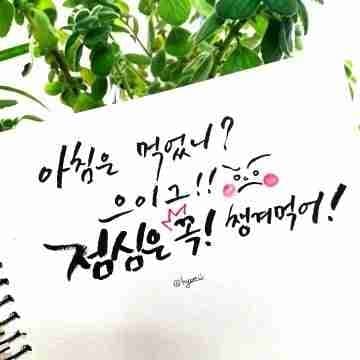 아침은 먹었니?
으이그!!
점심은 꼭! 챙겨먹어!